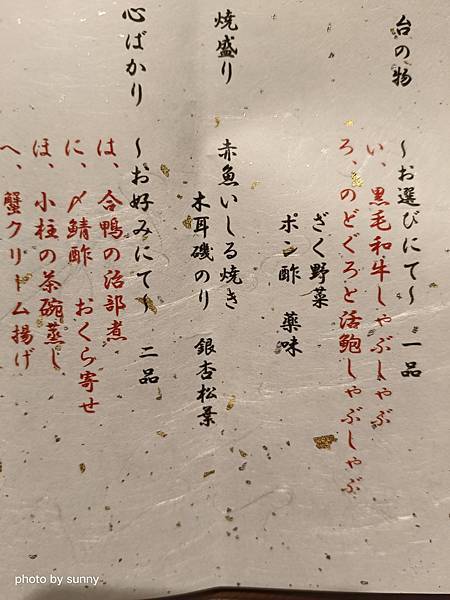 台の物
～お選びにて～　一品
い、黒毛和牛しゃぶしゃぶ
ろ、のどぐろと活鮑しゃぶしゃぶ
ざく野菜
ポン酢　薬味
焼盛り
赤魚いしる焼き
木耳磯のり　銀杏松葉
心ばかり
～お好みにて～　二品
は、合鴨の治部煮
に、〆鯖酢　おくら寄せ
ほ、小柱の茶碗蒸し
へ、蟹クリーム揚げ
photo by sunny